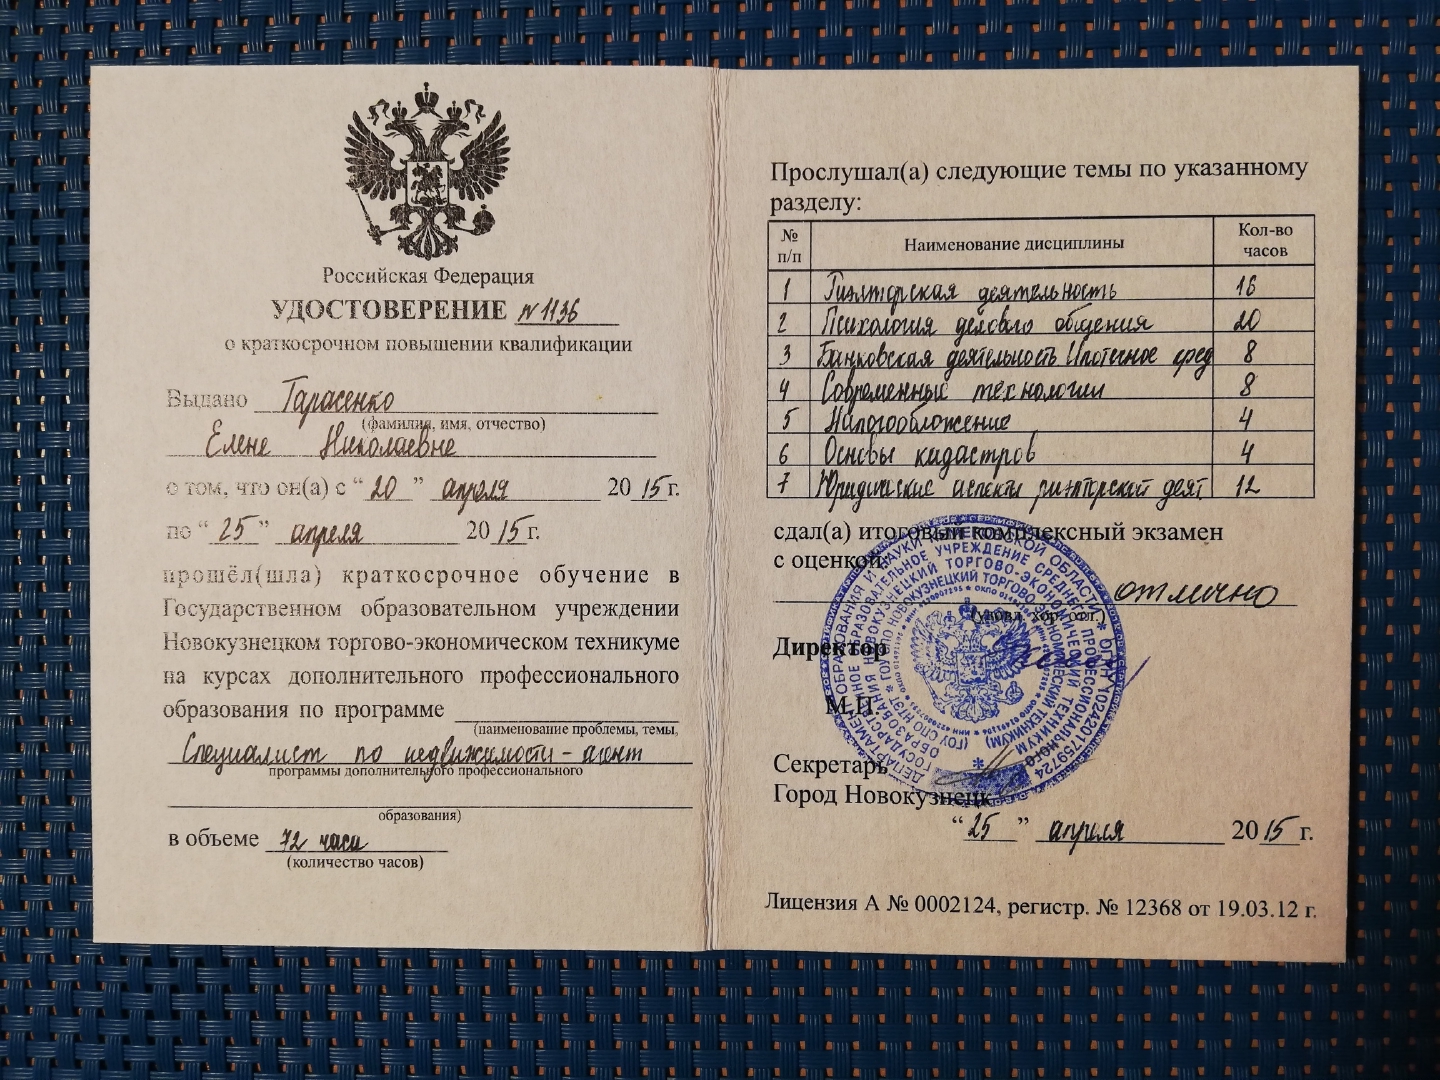 Российская Федерация
УДОСТОВЕРЕНИЕ №1136
о краткосрочном повышении квалификации
Выдано Тарасенко
(фамилия, имя, отчество)
Елене Николаевне
о том, что он(а) с “20” апреля 2015г.
по “25” апреля 2015г.
прошёл(шла) краткосрочное обучение в
Государственном образовательном учреждении
Новокузнецком торгово-экономическом техникуме
на курсах дополнительного профессионального
образования по программе
(наименование проблемы, темы,
Специалист по недвижимости - агент
программы дополнительного профессионального
образования)
в объеме 72 часа
(количество часов)
Прослушал(а) следующие темы по указанному
разделу:
№ п/п Наименование дисциплины Кол-во часов
1 Риэлторская деятельность 16
2 Психология делового общения 20
3 Банковская деятельность Ипотечное кред 8
4 Современные технологии 8
5 Налогообложение 4
6 Основы кадастров 4
7 Юридические аспекты риэлторской деят 12
сдал(а) итоговый комплексный экзамен
с оценкой:
отлично
(удовл. хор. отл.)
Директор
М.П.
Секретарь
Город Новокузнецк
“25” апреля 2015г.
Лицензия А № 0002124, регистр. № 12368 от 19.03.12 г.